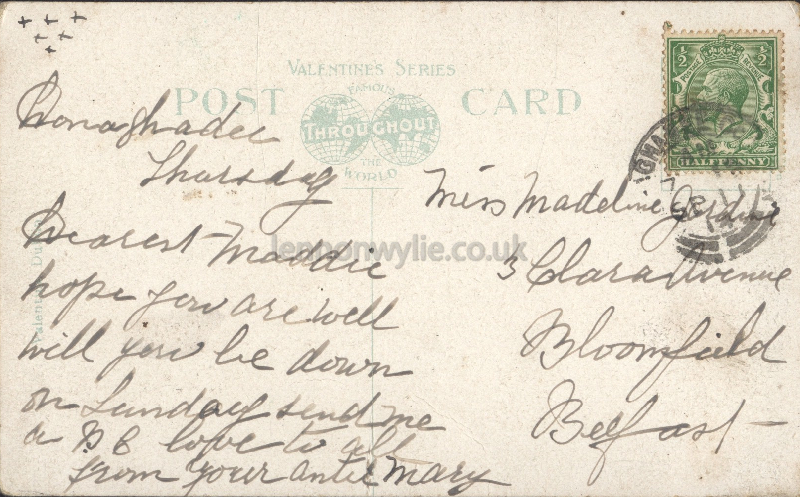 VALENTINES SERIES
POST CARD
FAMOUS
THROUGHOUT
THE
WORLD
½ ½
HALFPENNY
Donaghadee
Thursday
Dearest Maddie
hope you are well
will you be down
on Sunday send me
a PC love to all
from your antie Mary
Miss Madeline
3 Clara Avenue
Bloomfield
Belfast
lennonwylie.co.uk